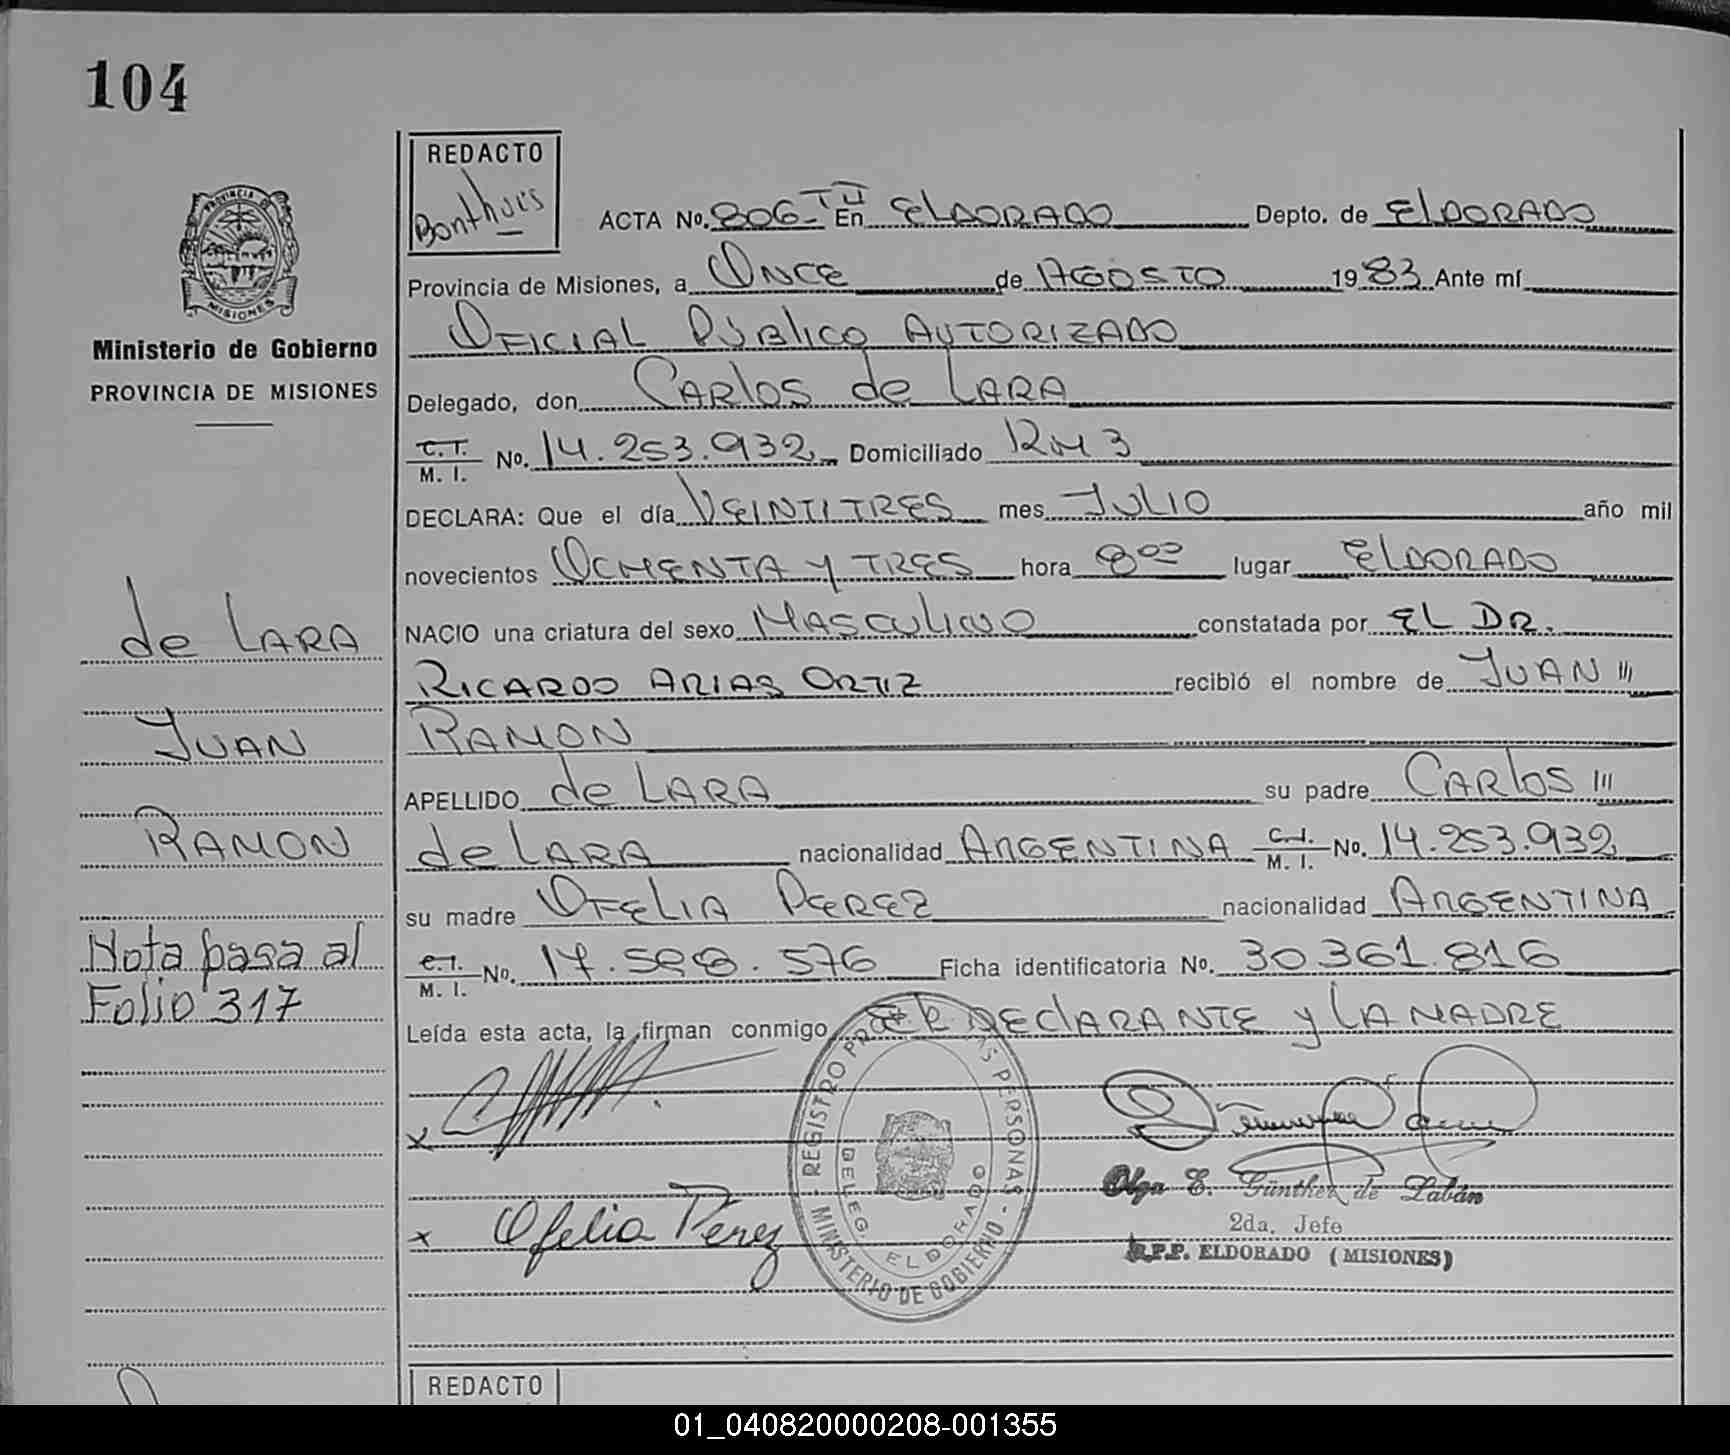 104
REDACTO
Bonthuis
PROVINCIA DE
MISIONES
Ministerio de Gobierno
PROVINCIA DE MISIONES
ACTA No. 806-T II En ELDORADO Depto. de ELDORADO
Provincia de Misiones, a ONCE de AGOSTO 1983 Ante mí
OFICIAL PÚBLICO AUTORIZADO
Delegado, don CARLOS de LARA
C.I. M. I. No. 14.253.932 Domiciliado KM 3
DECLARA: Que el día VEINTITRES mes JULIO año mil
novecientos OCHENTA Y TRES hora 8 00 lugar ELDORADO
NACIO una criatura del sexo MASCULINO constatada por EL DR.
RICARDO ARIAS ORTIZ recibió el nombre de JUAN
RAMON
APELLIDO de LARA su padre CARLOS
de LARA nacionalidad ARGENTINA C.I. M. I. No. 14.253.932
su madre OFELIA PEREZ nacionalidad ARGENTINA
C.I. M. I. No. 17.588.576 Ficha identificatoria No. 30 361.816
Leída esta acta, la firman conmigo EL DECLARANTE y LA MADRE
de LARA
JUAN
RAMON
Nota pasa al
Folio 317
x
x Ofelia Perez
REGISTRO PERSONAS
MINISTERIO DE GOBIERNO
DELEG. ELDORADO
Olga E. Günther de Labán
2da. Jefe
R.P.P. ELDORADO (MISIONES)
REDACTO
01_040820000208-001355